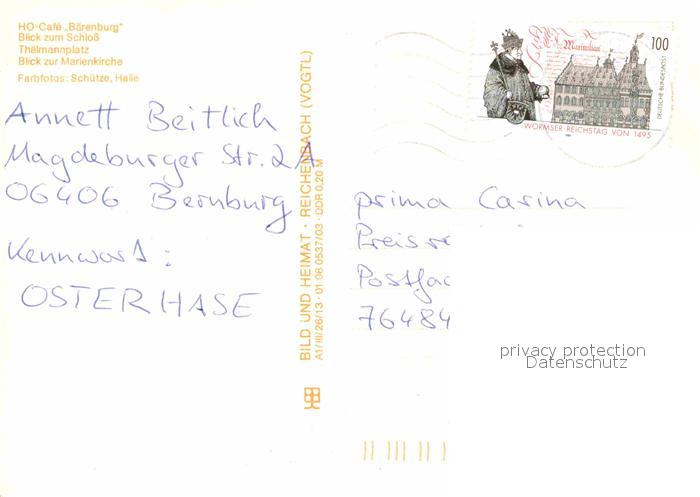 HO-Café „Bärenburg"
Blick zum Schloß
Thälmannplatz
Blick zur Marienkirche
Farbfotos: Schütze, Halle
Annett Beitlich
Magdeburger Str. 2A
06406 Bernburg
Kennwort:
OSTERHASE
BILD UND HEIMAT · REICHENBACH (VOGTL)
A1/III/26/13 · 01 08 0537/03 · DDR 0,20 M
Maximilian
100
DEUTSCHE BUNDESPOST
WORMSER REICHSTAG VON 1495
prima Carina
Postfac
76484
privacy protection
Datenschutz